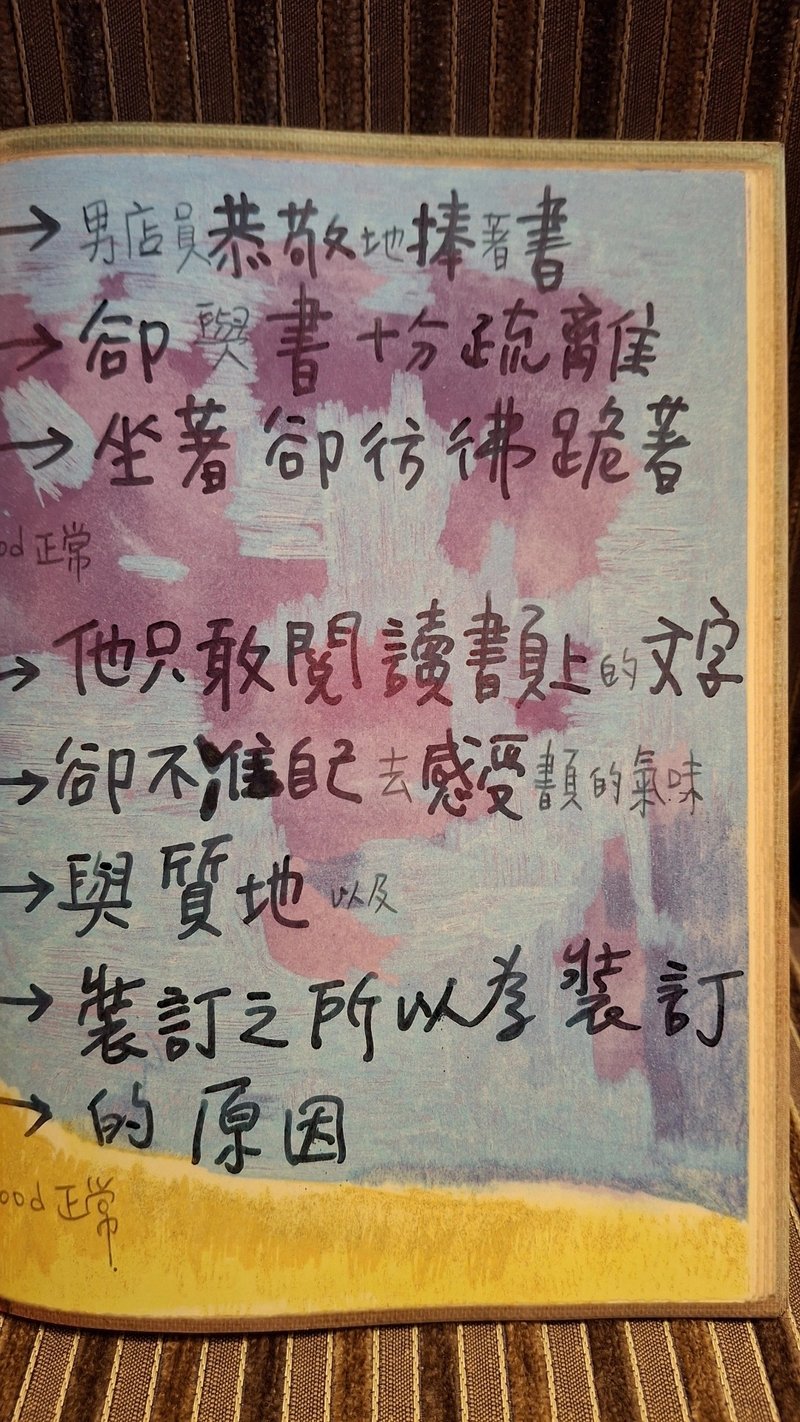 → 男店員恭敬地捧著書
→ 卻與書十分疏離
→ 坐著卻彷彿跪著
ood 正常
→ 他只敢閱讀書頁上的文字
→ 卻不准自己去感受書頁的氣味
→ 與質地以及
→ 裝訂之所以為裝訂
→ 的原因
ood 正常